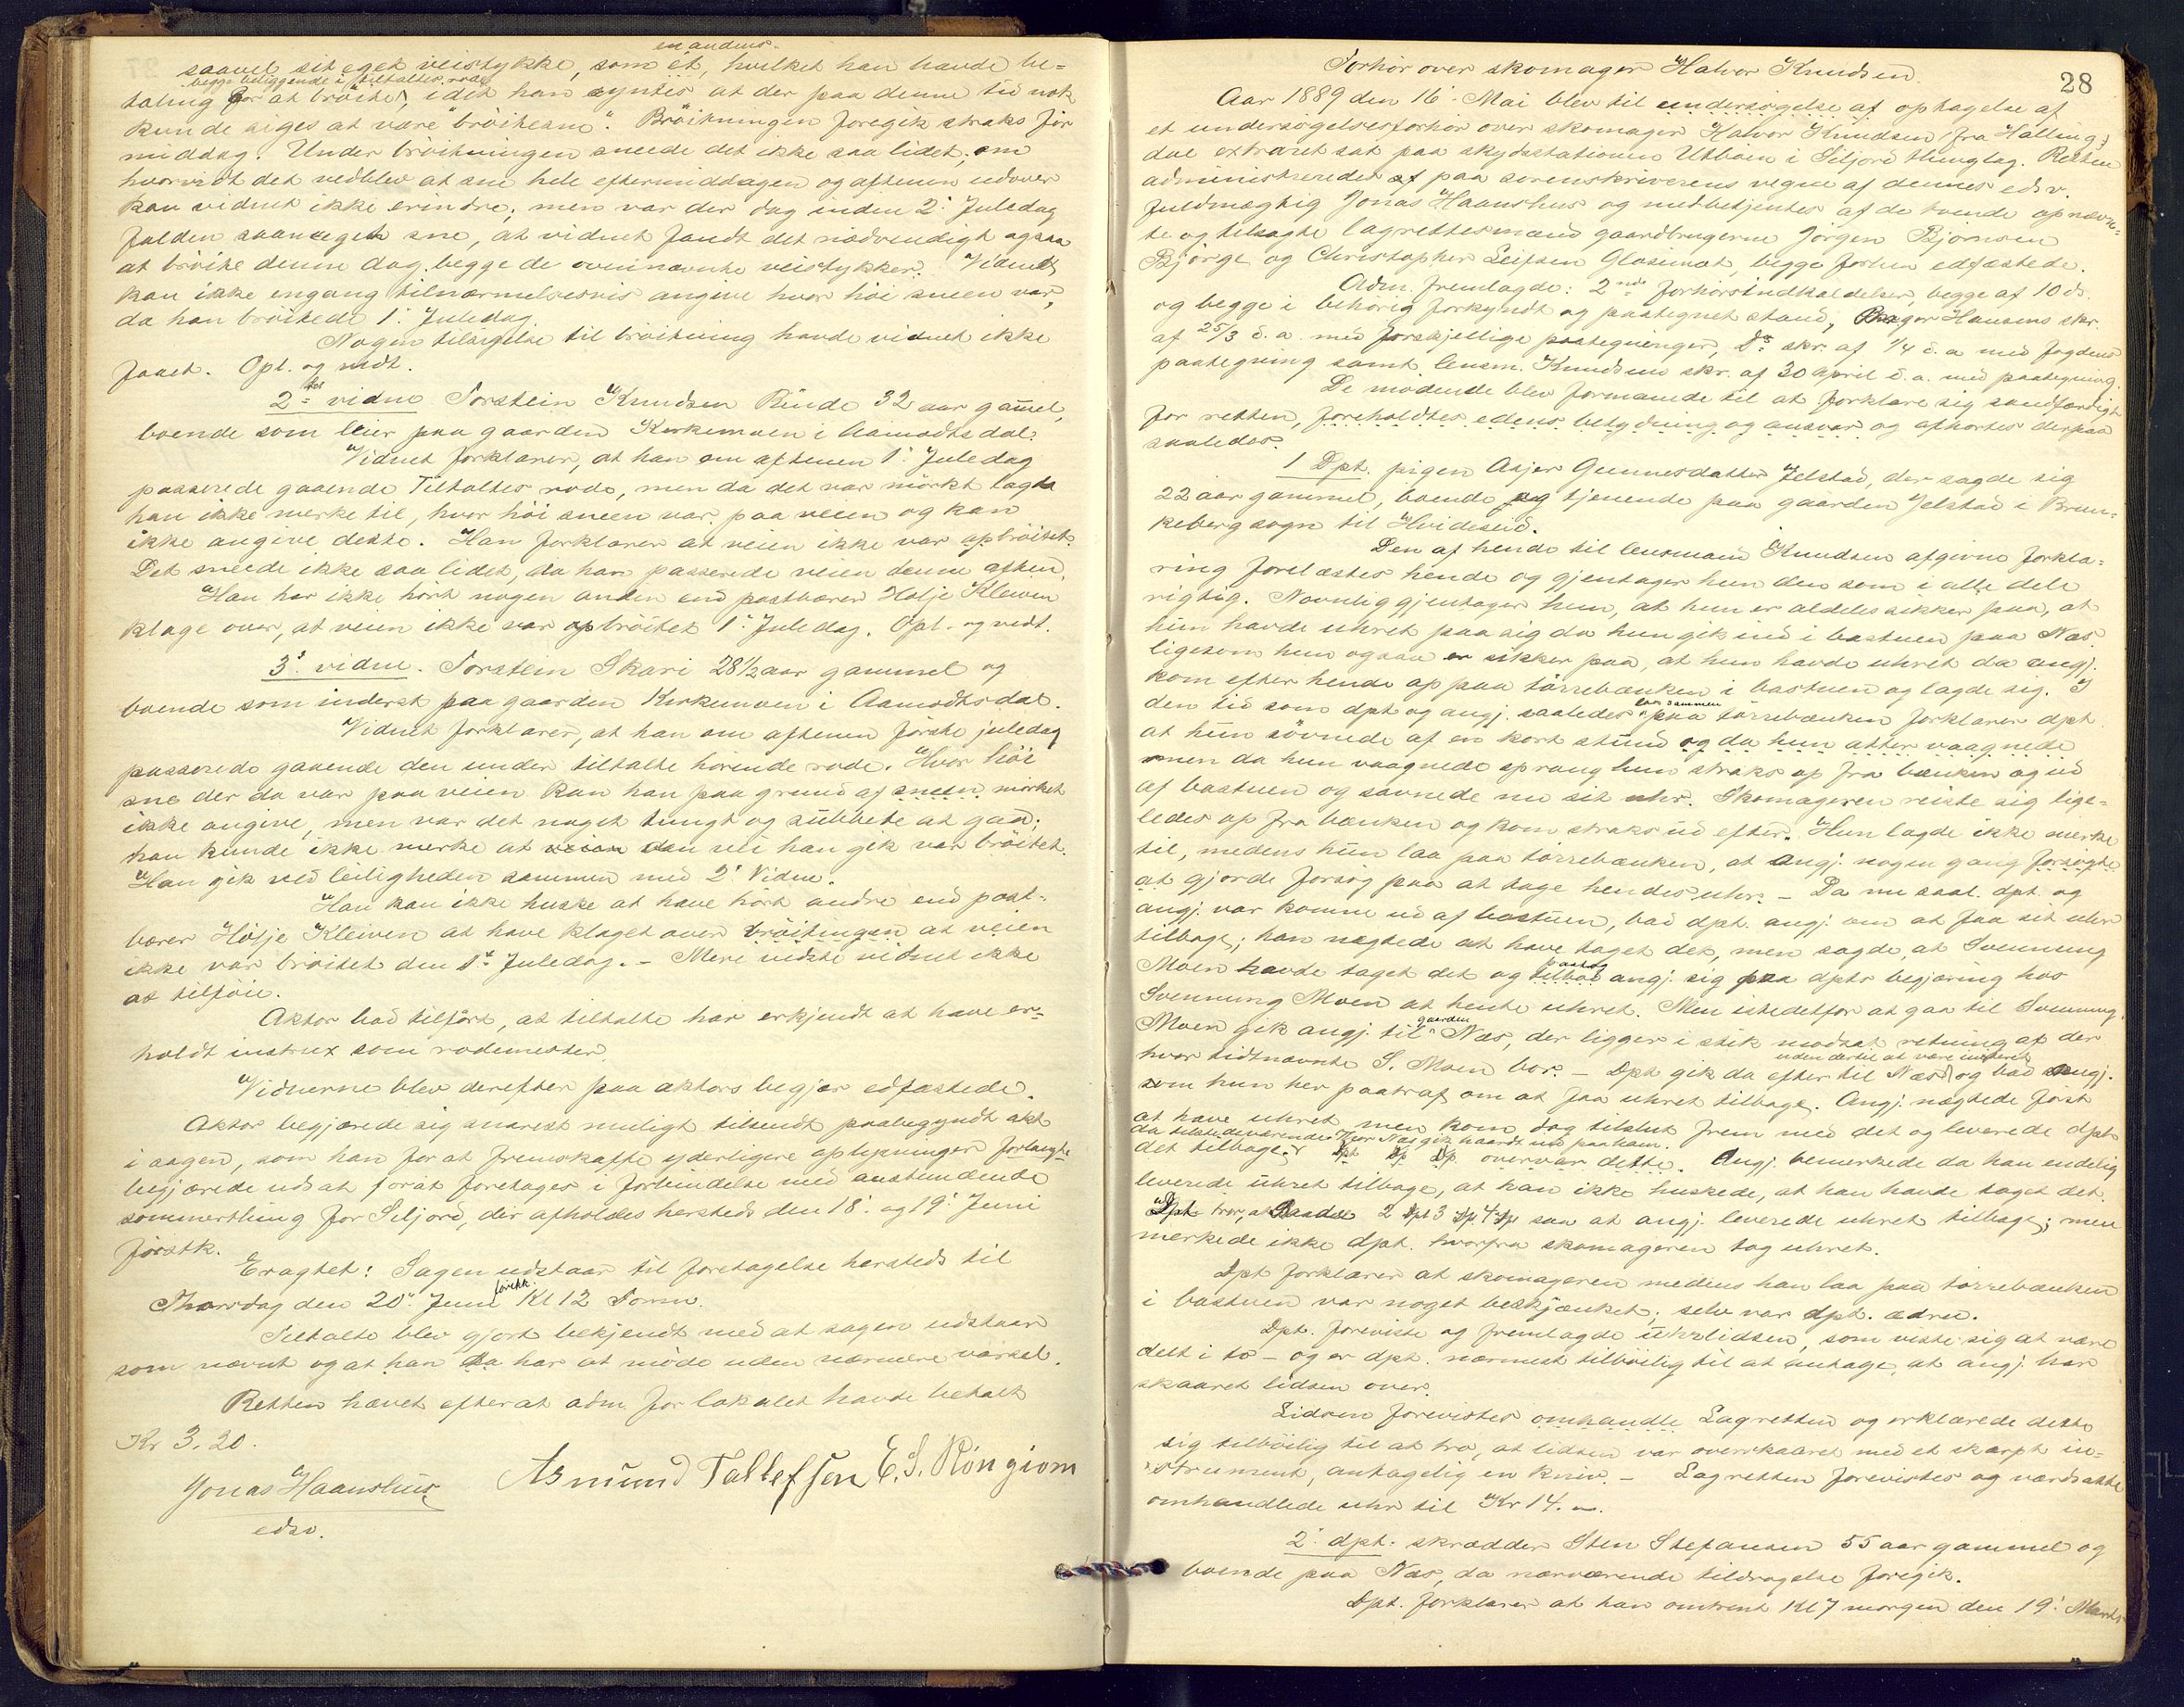 en andens
saavel sit eget veistykke, som et, hvilket han havde be-
begge beliggende i tiltaltes rode
taling for at brøite, idet han syntes at der paa denne tid nok
kunde siges at være "brøitesne". Brøitningen foregik straks før
middag. Under brøitningen sneede det ikke saa lidet, om
hvorvidt det vedblev at sne hele eftermiddagen og aftenen udover
kan vidnet ikke erindre, men var der dag inden 2' Juledag
falden saameget sne, at vidnet fandt det nødvendigt ogsaa
at brøite denne dag begge de ovennævnte veistykker. Vidnet
kan ikke engang tilnærmelsesvis angive hvor høi sneen var,
da han brøitede 1' Juledag
Nogen tilsigelse til brøitning havde vidnet ikke
faaet. Opl. og vedt.
2det vidne Torstein Knudsen Rinde 32 aar gammel,
boende som leier paa gaarden Kirkemoen i Aamodtsdal.
Vidnet forklarer, at han om aftenen 1' Juledag
passerede gaaende Tiltaltes rode, men da det var mørkt lagde
han ikke merke til, hvor høi sneen var paa veien og kan
ikke angive dette. Han forklarer at veien ikke var opbrøitet.
Det sneede ikke saa lidet, da han passerede veien denne aften,
Han har ikke hørt nogen anden end postbærer Hølje Kleiven
klage over, at veien ikke var opbrøitet 1' Juledag. Opl. og vedt.
3' vidne. Torstein Skari 28 1/2 aar gammel og
boende som inderst paa gaarden Kirkemoen i Aamodtsdal.
Vidnet forklarer, at han om aftenen første juledag
passerede gaaende den under tiltalte hørende rode. Hvor høi
sne der da var paa veien kan han paa grund af sneen mørket
ikke angive, men var det noget tungt og subbete at gaa;
han kunde ikke merke at veien den vei han gik var brøitet.
Han gik ved leiligheden sammen med 2' Vidne.
Han kan ikke huske at have hørt andre end post-
bærer Hølje Kleiven at have klaget over brøitingen at veien
ikke var brøitet den 1ste Juledag. - Mere vidste vidnet ikke
at tilføie.
Aktor bad tilført, at tiltalte har erkjendt at have er-
holdt instrux som rodemester.
Vidnerne blev derefter paa aktors begjær edfæstede.
Aktor begjærede sig snarest muligt tilsendt paabegyndt akt
i sagen, som han for at fremskaffe yderligere oplysninger forlangte
begjærede udsat forat foretages i forbindelse med anstundende
sommerthing for Siljord, der afholdes hersteds den 18' og 19' Juni
førstk.
Eragtet: Sagen udstaar til foretagelse hersteds til
førstk.
Thorsdag den 20' Juni Kl 12 Form.
Tiltalte blev gjort bekjendt med at sagen udstaar
som nævnt og at han da har at møde uden nærmere varsel.
Retten hævet efterat adm. for lokalet havde betalt
Kr 3.20.
Jonas Haanshus
edsv.
Asmund Tallefsen E. S. Rongiom
28
Forhør over skomager Halvor Knudsen.
Aar 1889 den 16' Mai blev til undersøgelse af optagelse af
et undersøgelsesforhør over skomager Halvor Knudsen (fra Halling-
dal extraret sat paa skydsstationen Utbøen i Siljord thinglag. Retten
administreredes af paa sorenskriverens vegne af dennes edsv.
fuldmægtig Jonas Haanshus og medbetjentes af de tvende opnævn-
te og tilsagte lagrettesmænd gaardbrugerne Jørgen Bjørnsen
Bjørge og Christopher Leifsen Glosimot, begge forhen edfæstede.
Adm. fremlagde: 2nde forhørsindkaldelser, begge af 10 ds.
og begge i behørig forkyndt og paategnet stand, Hansens skr.
af 25/3 d. a. med forskjellige paategninger, Ds skr. af 1/4 d. a med fogdens
paategning samt lensm. Knudsens skr. af 30 April d. a. med paategning.
De mødende blev formanede til at forklare sig sandfærdigt
for retten, foreholdtes edens betydning og ansvar og afhørtes derpaa
saaledes.
1 Dpt. pigen Asjer Gunnesdatter Jelstad, der sagde sig
22 aar gammel, boende og tjenende paa gaarden Jelstad i Brun-
keberg sogn til Hvideseid.
Den af hende til lensmand Knudsen afgivne forkla-
ring forelæstes hende og gjentager hun den som i alle dele
rigtig. Navnlig gjentager hun, at hun er aldeles sikker paa, at
hun havde uhret paa sig da hun gik ind i bastuen paa Næs
ligesom hun ogsaa er sikker paa, at hun havde uhret da angj.
kom efter hende op paa tørrebænken i bastuen og lagde sig. I
laa sammen
den tid som dpt og angj. saaledes paa tørrebænken forklarer dpt.
at hun søvnede af en kort stund og da hun atter vaagnede
men da hun vaagnede sprang hun straks op fra bænken og ud
af bastuen og savnede nu sit uhr. Skomageren reiste sig lige-
ledes op fra bænken og kom straks ud efter. Hun lagde ikke merke
til, medens hun laa paa tørrebænken, at angj. nogen gang forsøgte
at gjorde forsøg paa at tage hendes uhr. - Da nu saal. dpt. og
angj. var komne ud af bastuen, bad dpt. angj. om at faa sit uhr
tilbage; han nægtede at have taget det, men sagde, at Svennung
paatog
Moen havde taget det og tilbød angj. sig paa dpts begjæring hos
Svennung Moen at hente uhret. Men istedetfor at gaa til Svennung
gaarden
Moen gik angj. til Næs, der ligger i stik modsat retning af der
uden dertil at være inviteret
hvor sidtnævnte S. Moen bor. - Dpt gik da efter til Næs og bad angj.
som hun her paatraf om at faa uhret tilbage. Angj. nægtede først
at have uhret, men kom dog tilslut frem med det og leverede dpt
da tilstedeværende Næs gik haardt ind paa ham.
det tilbage. Dpt Dp Dp overvar dette. Angj. bemerkede da han endelig
leverede uhret tilbage, at han ikke huskede, at han havde taget det.
Dpt tror, at 2 Dpt 3 Dp 4 Dp saa at angj. leverede uhret tilbage; men
merkede ikke dpt. hvorfra skomageren tog uhret.
Dpt forklarer at skomageren medens han laa paa tørrebænken
i bastuen var noget beskjænket; selv var dpt. ædru.
Dpt. foreviste og fremlagde uhrlidsen, som viste sig at være
delt i to - og er dpt. nærmest tilbøielig til at antage, at angj. har
skaaret lidsen over.
Lidsen forevistes omhandle Lagretten og erklærede dette
sig tilbøielig til at tro, at lidsen var overskaaret med et skarpt in-
strument, antagelig en kniv. - Lagretten forevistes og værdsatte
omhandlede uhr til Kr 14. -.
2' dpt. skrædder Sten Stefansen 55 aar gammel og
boende paa Næs, da nærværende tildragelse foregik.
Dpt. forklarer at han omtrent Kl 7 morgen den 19' Marts